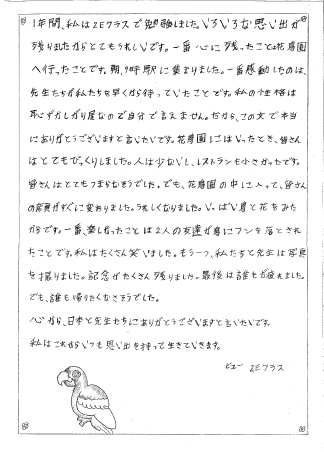 1年間、私は2Eクラスで勉強しました。いろいろな思い出が
残りましたからとてもうれしいです。一番心に残ったことは花鳥園
へ行ったことです。朝、9時駅に集まりました。一番感動したのは、
先生たちが私たちを早くから待っていたことです。私の性格は
恥ずかしがり屋なので自分で言えません。だから、この文で本当
にありがとうございますと言いたいです。花鳥園にはいったとき、皆さん
はとてもびっくりしました。人は少ないし、レストランも小さかったです。
皆さんはとてもつまらなそうでした。でも、花鳥園の中に入って、皆さん
の表情がすぐに変わりました。うれしくなりました。いっぱい鳥と花をみた
からです。一番、楽しかったことは2人の友達が鳥にフンを落とされ
たことです。私はたくさん笑いました。もう一つ、私たちと先生は写真
を撮りました。記念がたくさん残りました。最後は誰もが疲れました。
でも、誰も帰りたくなさそうでした。
心から、日本と先生たちにありがとうございますと言いたいです。
私はこれからいつも思い出を持って生きていきます。
ビュー 2Eクラス